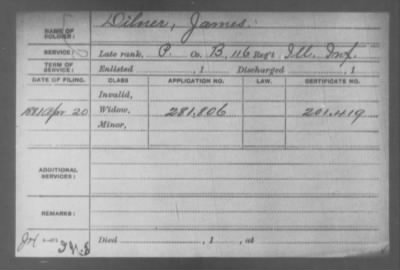 NAME OF SOLDIER: Dilner, James.
SERVICE: Late rank, P. Co. B, 116 Reg't Ill. Inf.
TERM OF SERVICE: Enlisted , 1 Discharged , 1
DATE OF FILING. CLASS APPLICATION NO. LAW. CERTIFICATE NO.
Invalid,
1881 Apr 20 Widow, 281,806 201,419
Minor,
ADDITIONAL SERVICES:
REMARKS:
Died , 1 , at